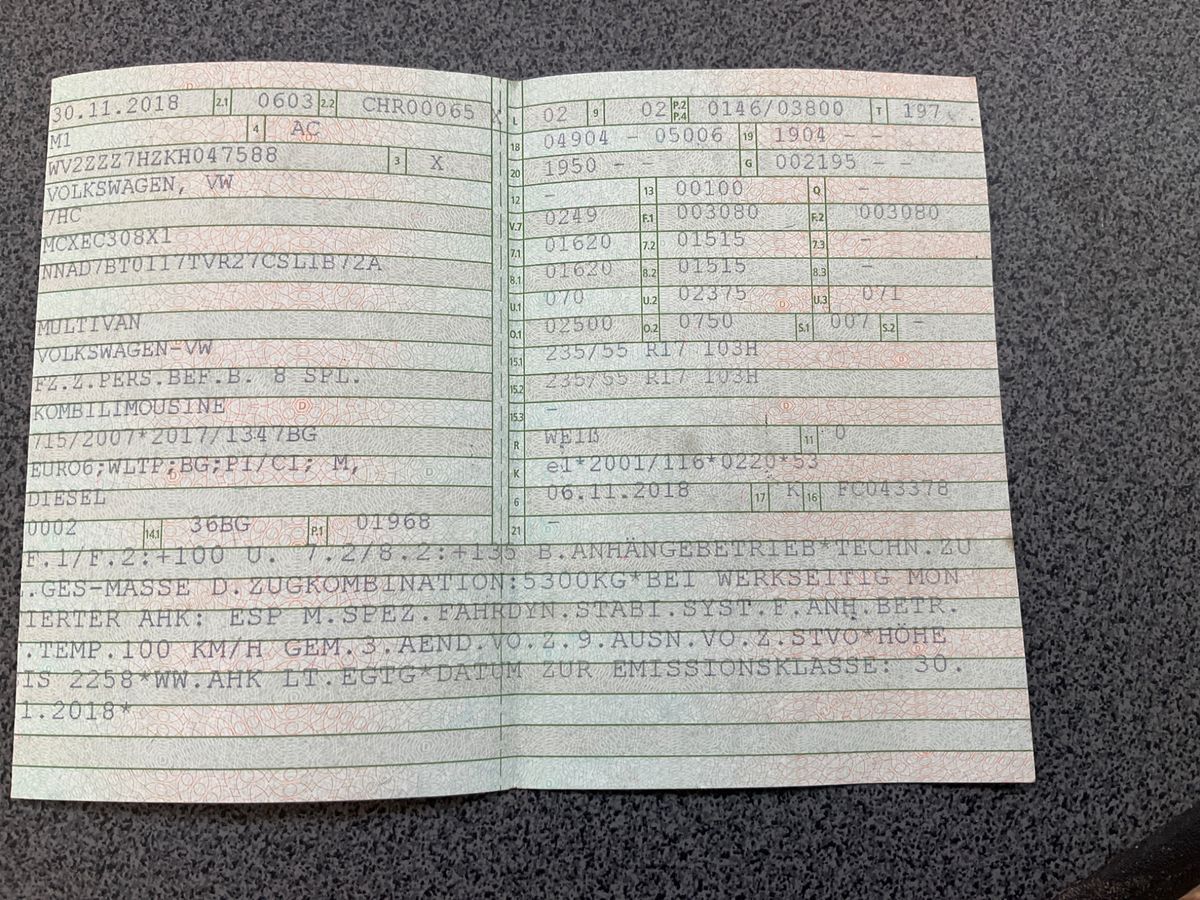 30.11.2018 2.1 0603 2.2 CHR00065 X
M1 4 AC
WV2ZZZ7HZKH047588 3 X
VOLKSWAGEN, VW
7HC
MCXEC308X1
NNAD7BT0117TVR27CSL1B72A
MULTIVAN
VOLKSWAGEN-VW
FZ.Z.PERS.BEF.B. 8 SPL.
KOMBILIMOUSINE
715/2007*2017/1347BG
EURO6;WLTP;BG;PI/CI; M,
DIESEL
0002 14.1 36BG P.1 01968
L 02 9 02 P.2 P.4 0146/03800 T 197
18 04904 - 05006 19 1904 - -
20 1950 - - G 002195 - -
12 - 13 00100 Q -
V.7 0249 F.1 003080 F.2 003080
7.1 01620 7.2 01515 7.3 -
8.1 01620 8.2 01515 8.3 -
U.1 070 U.2 02375 U.3 071
O.1 02500 O.2 0750 S.1 007 S.2 -
15.1 235/55 R17 103H
15.2 235/55 R17 103H
15.3 -
R WEIß 11 0
K e1*2001/116*0220*53
6 06.11.2018 17 K 16 FC043378
21 -
F.1/F.2:+100 U. 7.2/8.2:+135 B.ANHÄNGEBETRIEB*TECHN.ZU
.GES-MASSE D.ZUGKOMBINATION:5300KG*BEI WERKSEITIG MON
IERTER AHK: ESP M.SPEZ.FAHRDYN.STABI.SYST.F.ANH.BETR.
.TEMP.100 KM/H GEM.3.AEND.VO.Z.9.AUSN.VO.Z.STVO*HÖHE
IS 2258*WW.AHK LT.EGTG*DATUM ZUR EMISSIONSKLASSE: 30.
1.2018*